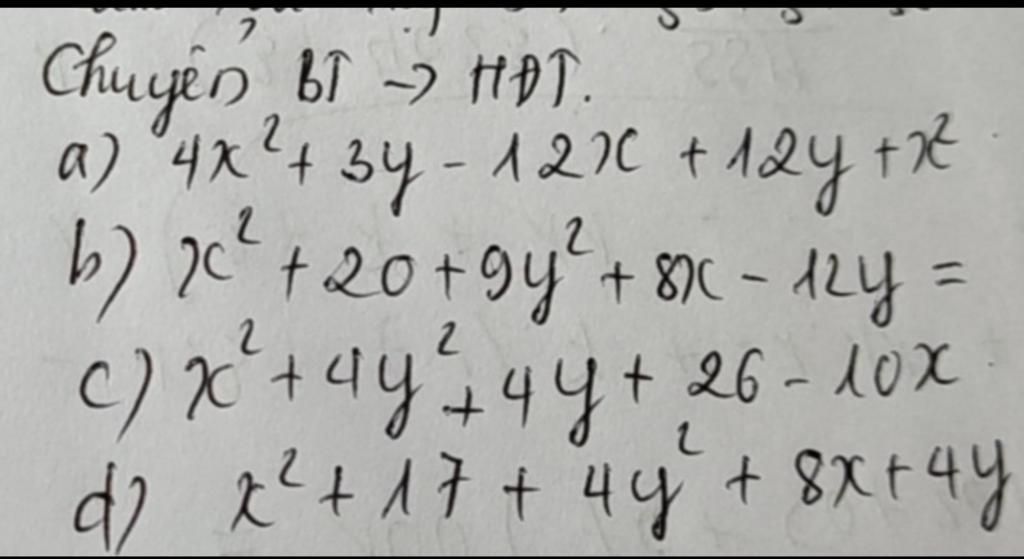 Chuyển BT → HĐT.
a) 4x² + 3y - 12x + 12y + x²
b) x² + 20 + 9y² + 8x - 12y =
c) x² + 4y² + 4y + 26 - 10x
d) x² + 17 + 4y² + 8x + 4y